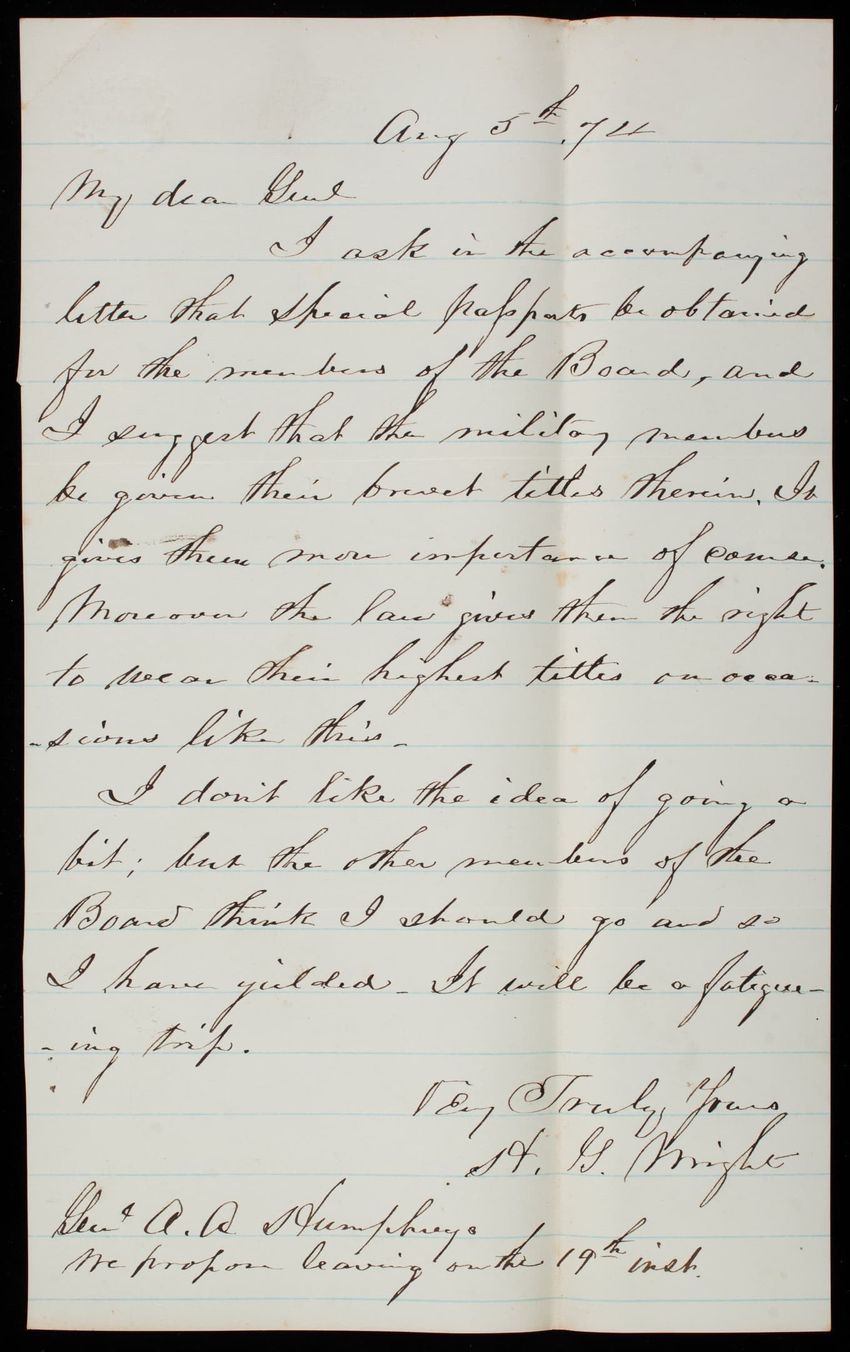 Aug 5th. 74
My dear Genl
I ask in the accompanying
letter that special passports be obtained
for the members of the Board, and
I suggest that the military members
be given their brevet titles therein. It
gives them more importance of course.
Moreover the law gives them the right
to wear their highest titles on occa-
-sions like this -
I don't like the idea of going a
bit; but the other members of the
Board think I should go and so
I have yielded - It will be a fatigue-
-ing trip.
Very Truly Yours
H. G. Wright
Genl A. A Humphreys
We propose leaving on the 19th inst.